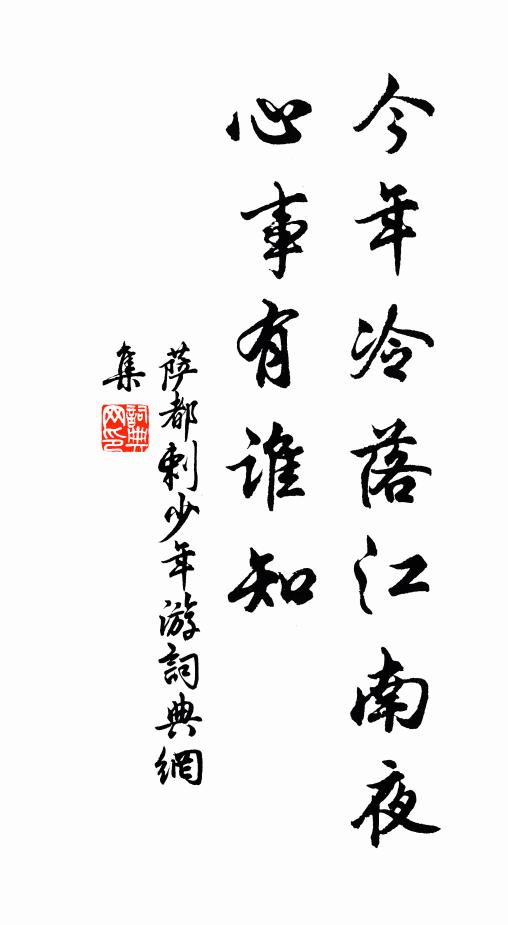 今年冷落江南夜
心事有谁知
萨都剌少年游詞典網
集
詞典网印